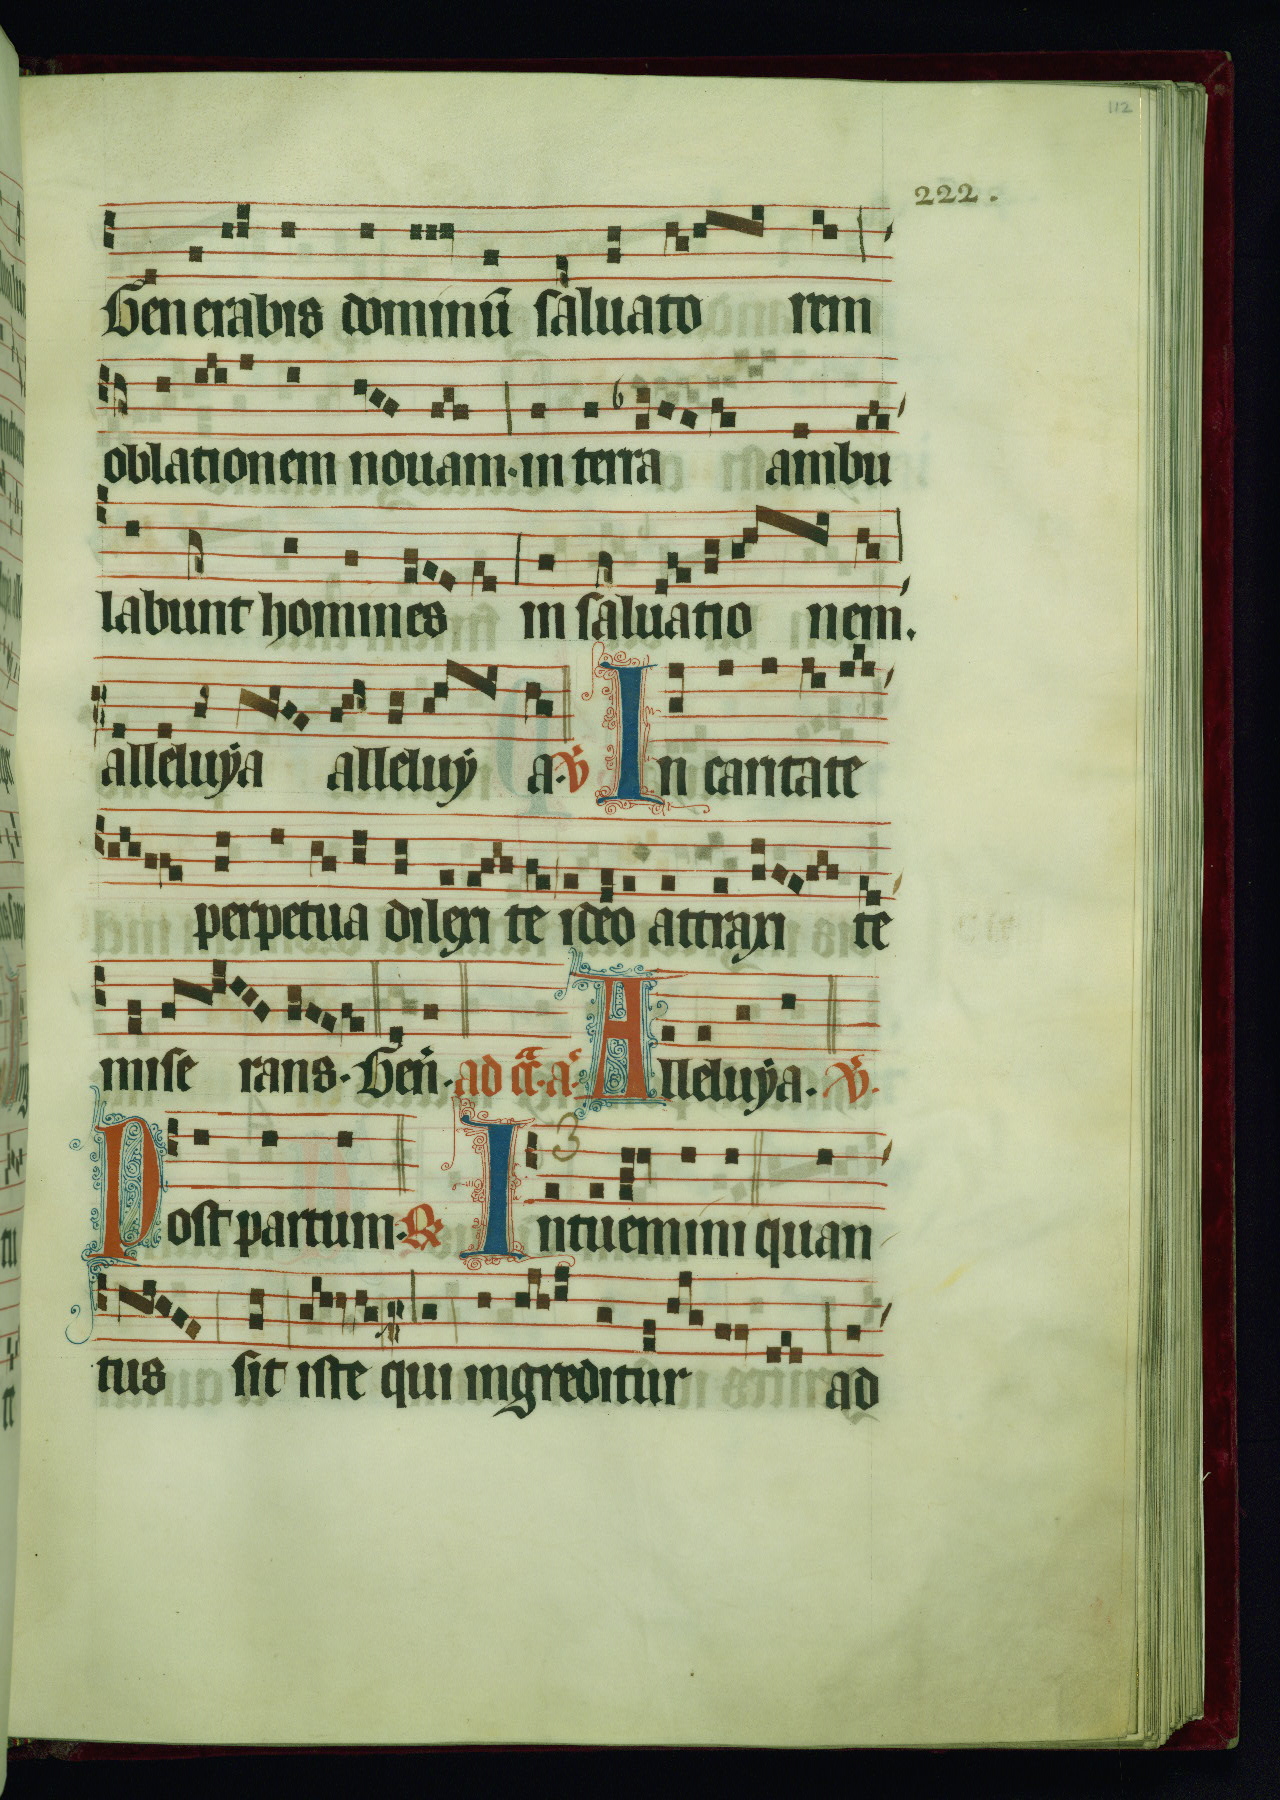 112
222.
Generabis dominū saluato rem
oblationem nouam·in terra ambu
labunt homines in saluatio nem.
alleluÿa alleluÿ a·℣ In caritate
perpetua dilexi te ideo attraxi te
mise rans·Gen̄·ad cā·a· Alleluÿa·℣·
Post partum·℟ Intuemini quan
3
tus sit iste qui ingreditur ad